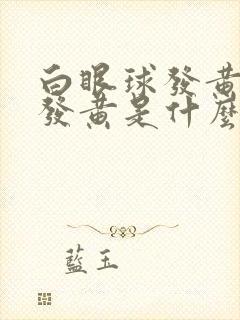 白眼球發黃
發黃是什麼
藍玉